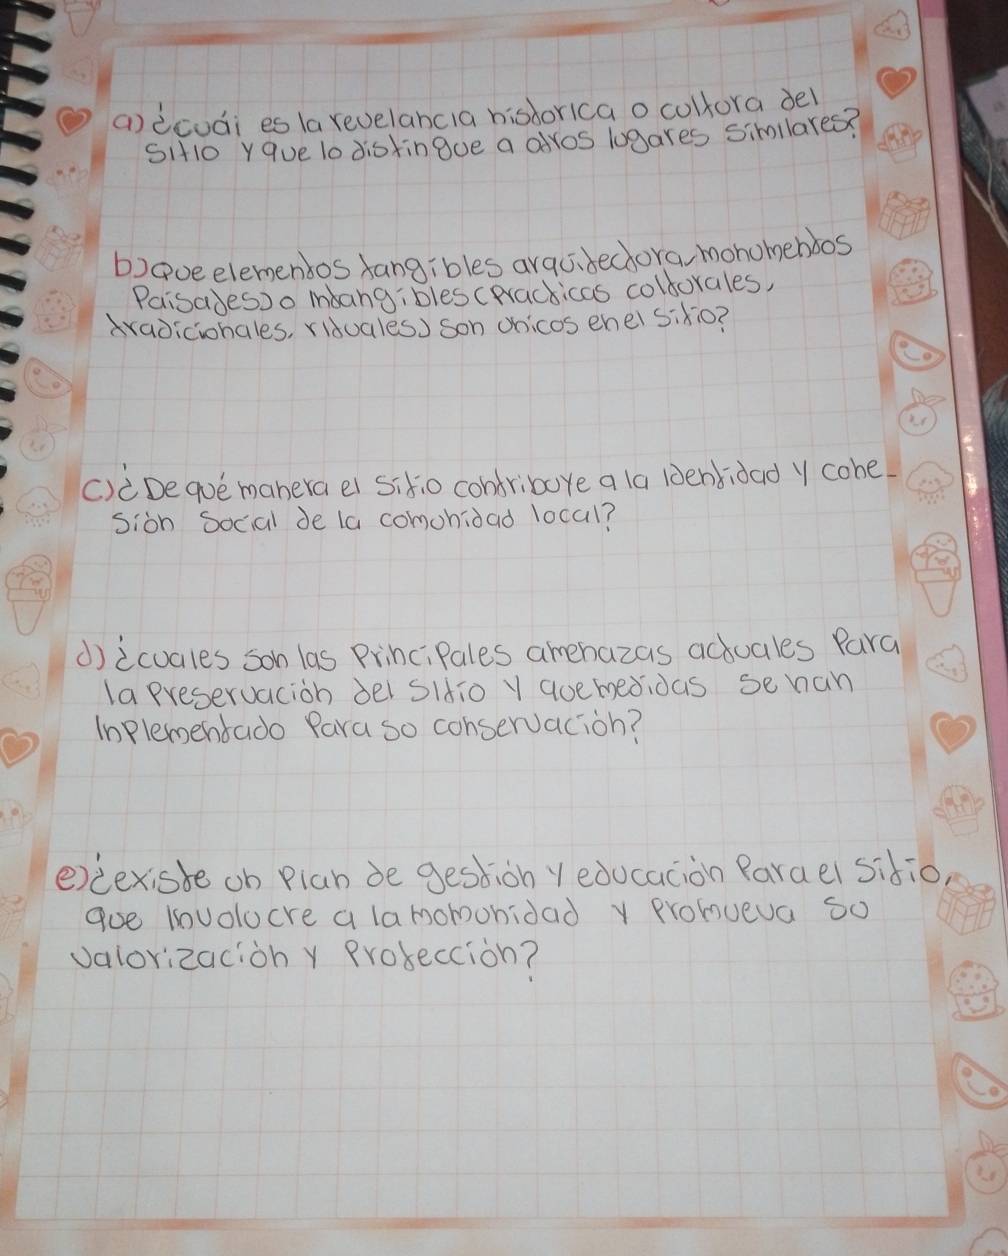 a) ¿cuái es la revelancia historica o cultura del
sitio y que lo distingue a otros lugares similares?
b) que elementos tangibles arquitectora, monumentos
Paisajes) o intangibles (Practicas culturales,
tradicionales, rituales) son unicos en el sitio?
c) ¿De qué manera el sitio contribuye a la identidad y cohe-
sión social de la comunidad local?
d) ¿cuales son las principales amenazas actuales Para
la preservación del sitio y que medidas se han
inplementado Para su conservación?
e) ¿existe un plan de gestión y educación Para el sitio,
que involucre a la momunidad y promueva su
valorización y Protección?